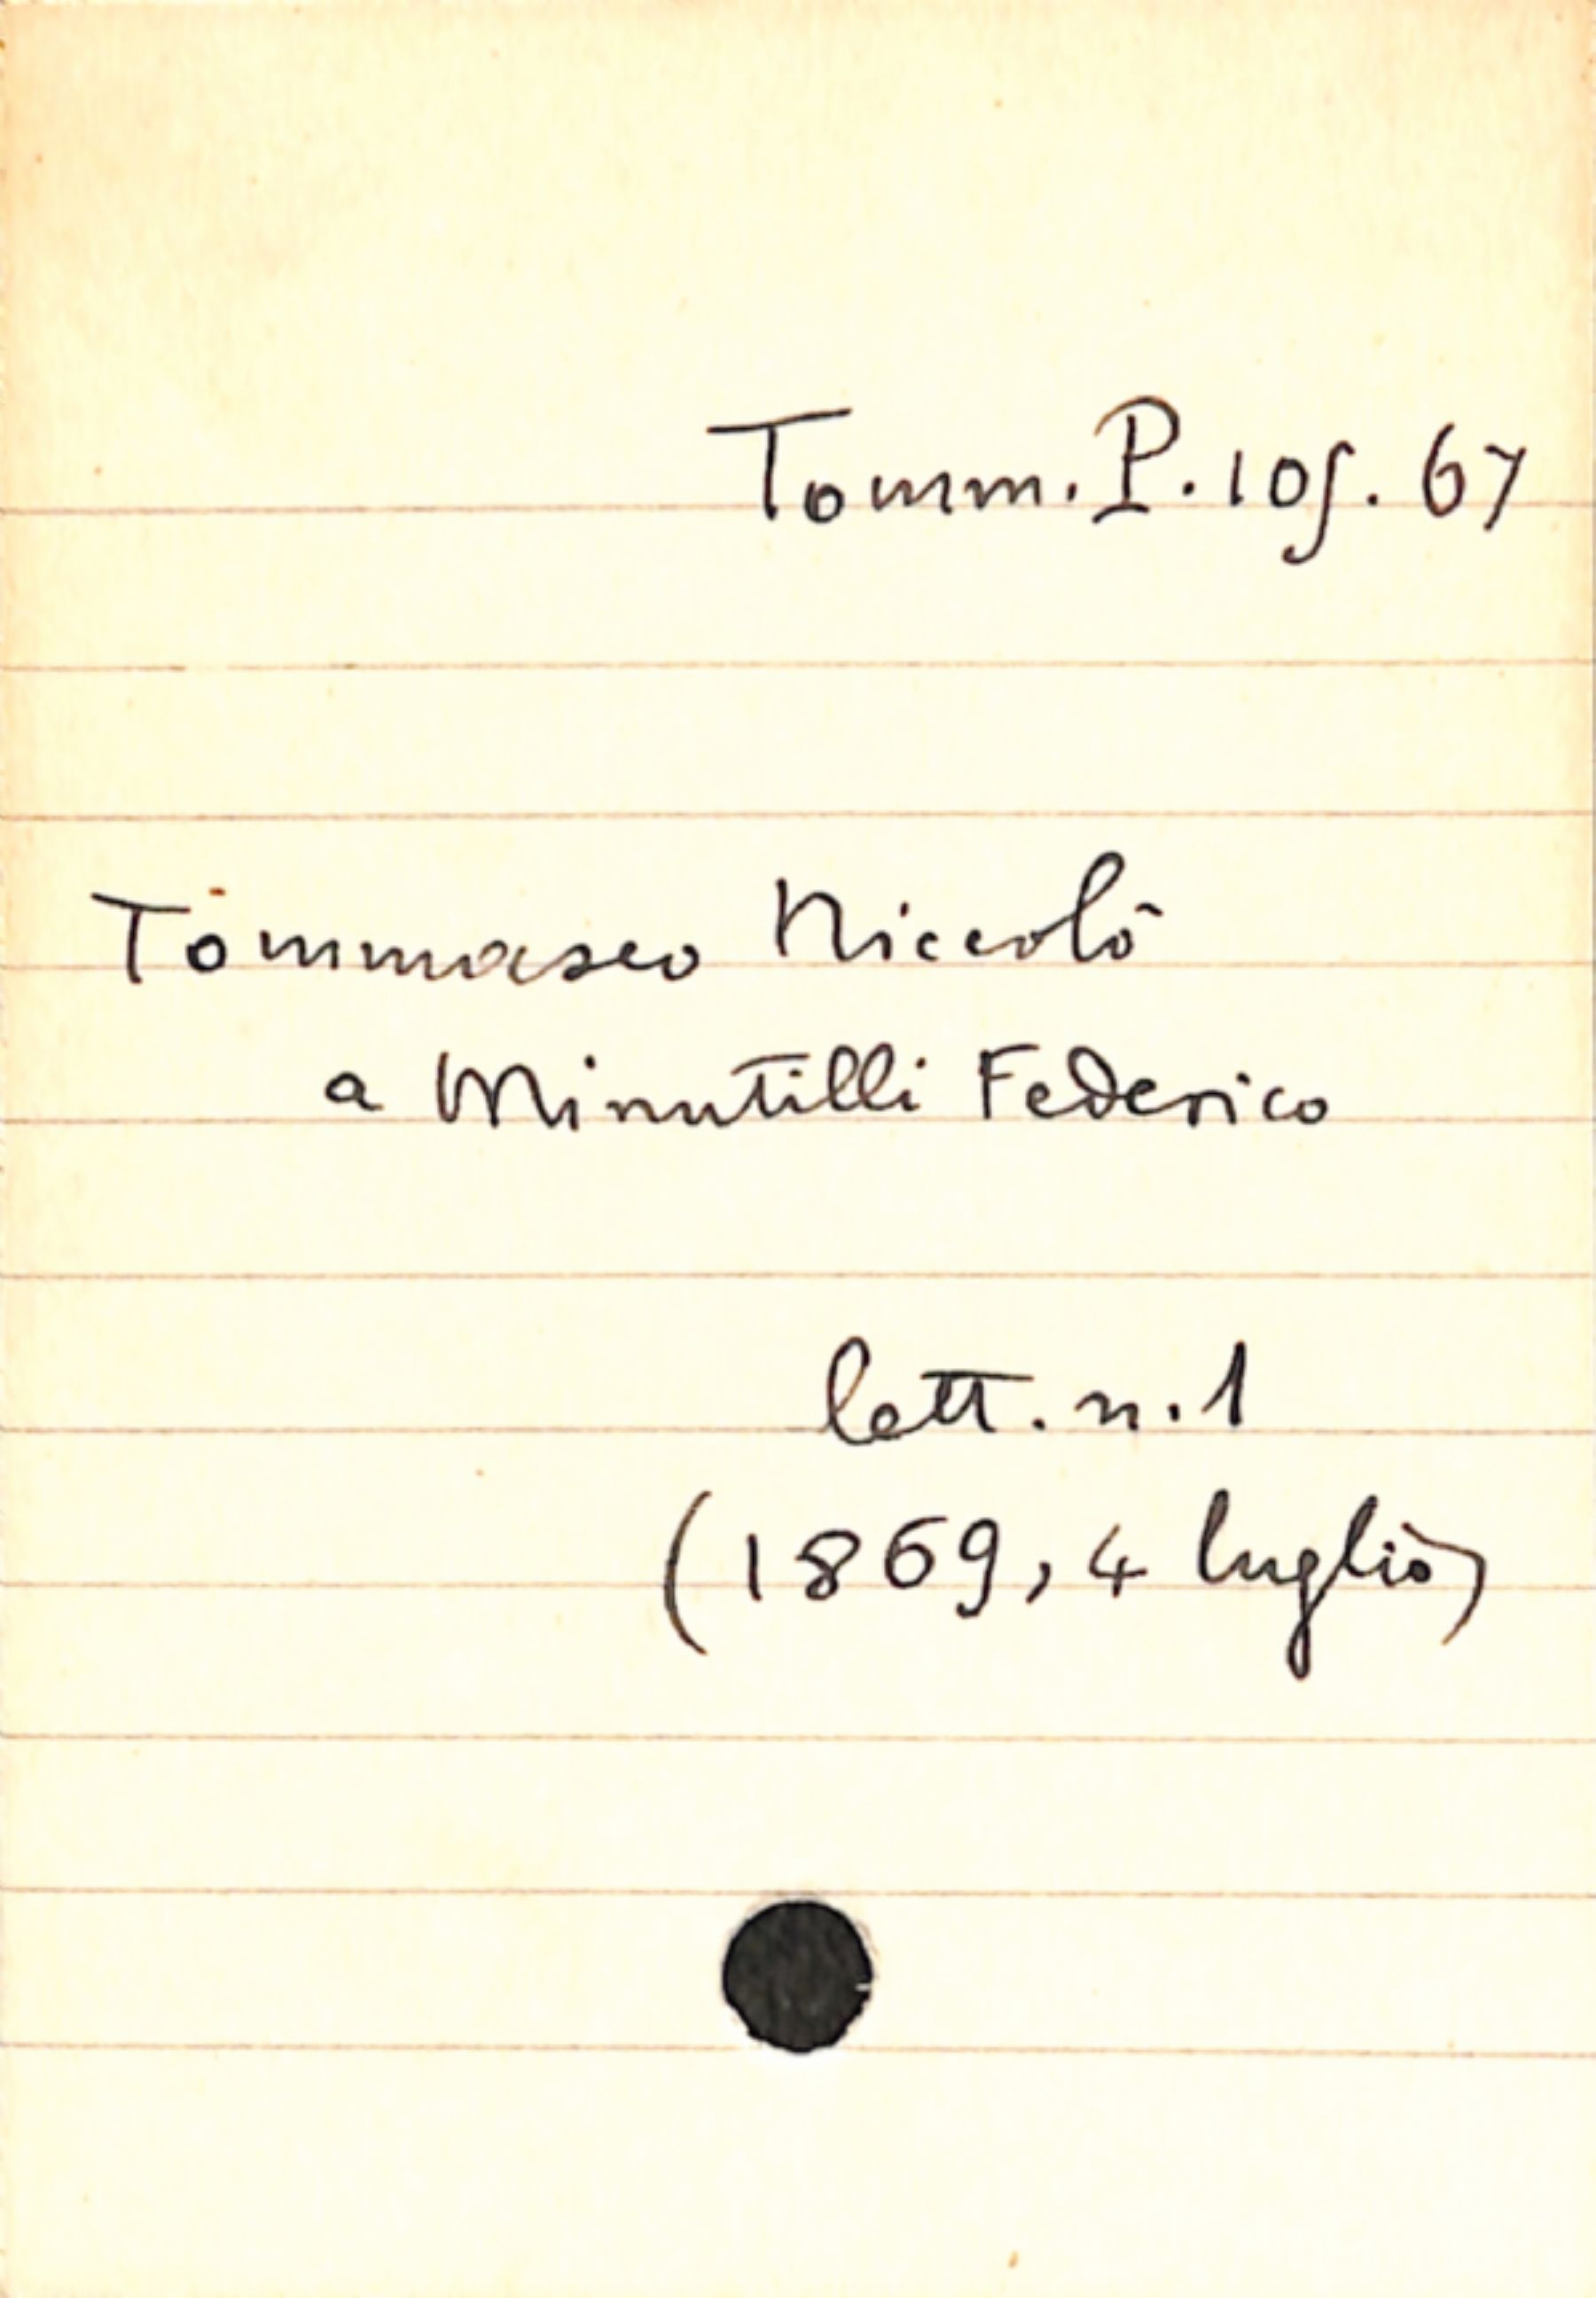 Tomm. P. 105. 67
Tommaseo Niccolò
a Minutilli Federico
lett. n. 1
(1869, 4 luglio)